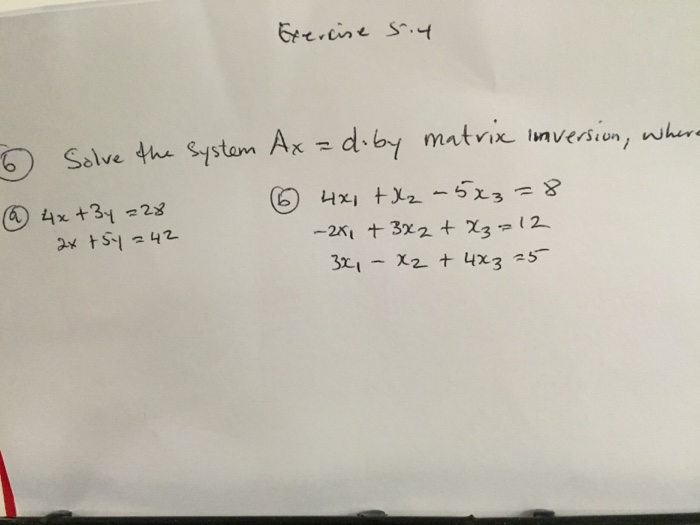 Exercise 5.4
6 Solve the system Ax = d by matrix inversion, where
(a) 4x + 3y = 28
2x + 5y = 42
(b) 4x₁ + x₂ - 5x₃ = 8
-2x₁ + 3x₂ + x₃ = 12
3x₁ - x₂ + 4x₃ = 5